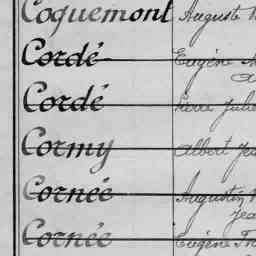 Coquemont Auguste
Cordé Eugène
Cordé Pierre Jules
Cormy Albert
Cornée Augustin
Cornée Eugène